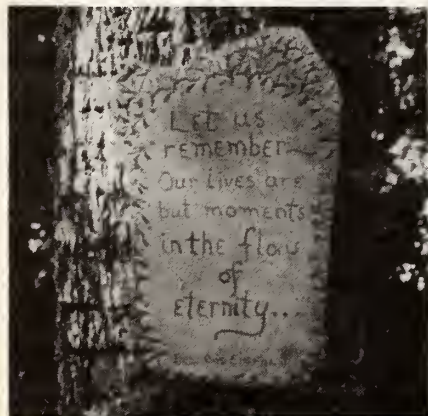 Let us
remember
Our lives are
but moments
in the flow
of
eternity...